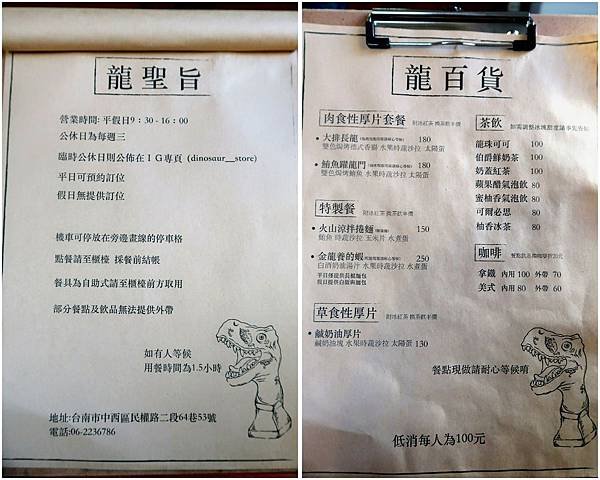 龍聖旨
營業時間: 平假日9：30 - 16：00
公休日為每週三
臨時公休日則公佈在ＩＧ專頁 (dinosaur__store)
平日可預約訂位
假日無提供訂位
機車可停放在旁邊畫線的停車格
點餐請至櫃檯 採餐前結帳
餐具為自助式請至櫃檯前方取用
部分餐點及飲品無法提供外帶
如有人等候
用餐時間為1.5小時
地址:台南市中西區民權路二段64巷53號
電話:06-2236786
龍百貨
肉食性厚片套餐 附冰紅茶 換茶飲半價
• 大排長龍 180
雙色焗烤德式香腸 水果時蔬沙拉 太陽蛋
• 鮪魚躍龍門 180
雙色焗烤鮪魚 水果時蔬沙拉 太陽蛋
特製餐 附冰紅茶 換茶飲半價
• 火山涼拌捲麵 150
鮪魚 時蔬沙拉 玉米片 水煮蛋
• 金龍養的蝦 250
白酒奶油湯汁 水果時蔬沙拉 水煮蛋
平日僅提供長棍麵包
假日提供白飯與麵包
草食性厚片 附冰紅茶 換茶飲半價
• 鹹奶油厚片
鹹奶油塊 水果時蔬沙拉 太陽蛋 130
茶飲 如需調整冰塊甜度請事先告知
龍珠可可 100
伯爵鮮奶茶 100
奶蓋紅茶 100
蘋果醋氣泡飲 80
蜜柚香氣泡飲 80
可爾必思 80
柚香冰茶 80
咖啡
拿鐵 內用 100 外帶 70
美式 內用 80 外帶 60
餐點現做請耐心等候唷
低消每人為100元